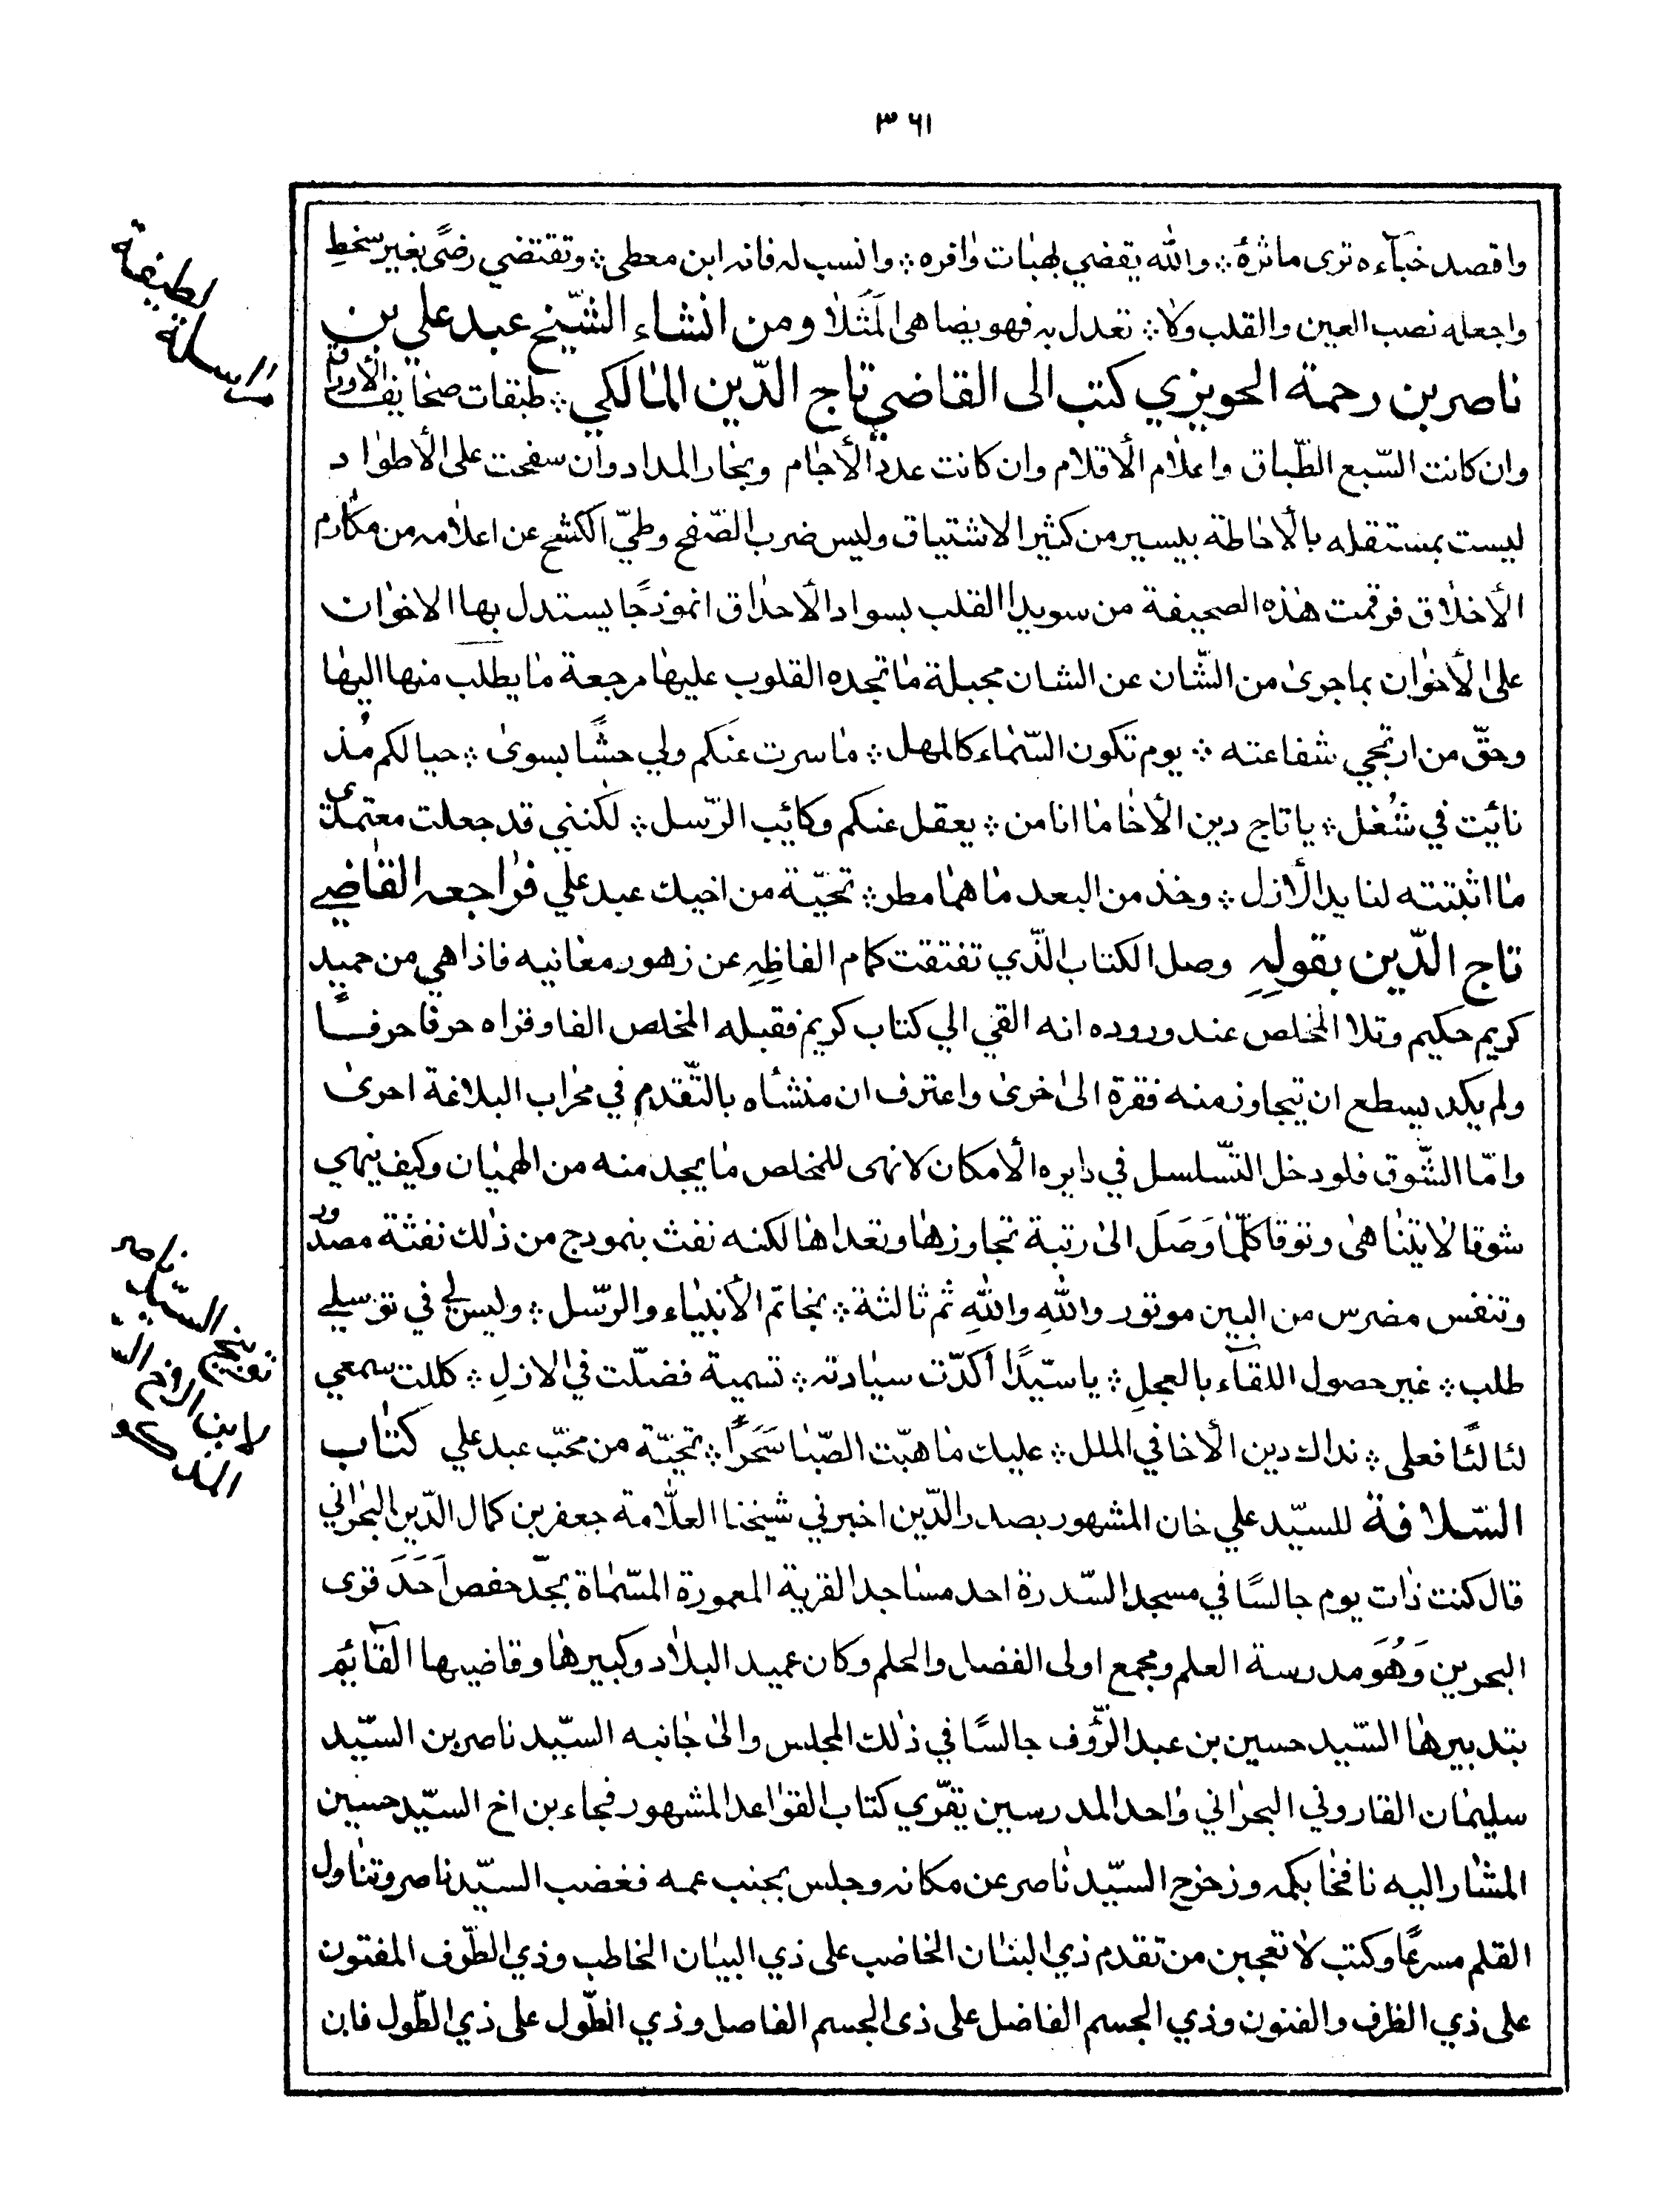 ٣٦١
واقصد خبآءه ترى ماثرة ۞ والله يقضي لهبات وافره ۞ وانسب له فانه ابن معطي ۞ وتقتضي رضًى بغير سخطِ
واجعله نصب العين والقلب ولا ۞ تعدل به فهو يضاهى المَثَلا ومن انشاء الشّيخ عبد علي بن
ناصر بن رحمة الحويزي كتب الى القاضي تاج الدّين المالكي ۞ طبقات صحايف الأوراق
وان كانت السّبع الطّباق واعلام الأقلام وان كانت عدد الأجام وبحار المداد وان سفحت على الأطواد
ليست بمستقله بالأحاطة بيسير من كثير الاشتياق وليس ضرب الصّفح وطيّ الكشح عن اعلامه من مكارم
الأخلاق فرقمت هذه الصحيفة من سويدا القلب بسواد الأحداق انموذجًا يستدل بها الاخوان
على الأخوان بما جرى من الشّان عن الشان مجبلة ما تجده القلوب عليها مرجعة ما يطلب منها اليها
وحقّ من ارتجي شفاعته ۞ يوم تكون السّماء كالمهل ۞ ما سرت عنكم ولي حشًا بسوى ۞ حبالكم مُذ
نائيت في شُغل ۞ يا تاج دين الأخا ما انا من ۞ يعقل عنكم وكائب الرّسل ۞ لكنني قد جعلت معتمدى
ما اثبتته لنا يد الأزل ۞ وخذ من البعد ما همٰا مطر ۞ تحيّة من اخيك عبد علي فراجعه القاضي
تاج الدّين بقولهِ وصل الكتاب الّذي تفتقت كمام الفاظِهِ عن زهور معانيه فاذا هي من حميد
كريم حكيم وتلا المخلص عند وروده انه القي الي كتاب كريم فقبله المخلص الفا وقراه حرفا حرفًا
ولم يكد يسطع ان يتجاوز منه فقرة الى اخرى واعترف ان منشأه بالتّقدم في محراب البلاغة احرى
وامّا الشّوق فلو دخل التّسلسل في دايره الأمكان لانهى للمخلص ما يجد منه من الهميان وكيف ينهي
شوقا لا يتناهى وتوقا كلّما وَصَلَ الى رتبة تجاوزها وتعداها لكنه نفث بنموذج من ذلك نفثة مصدور
وتنفس مضرس من البين موتور واللهِ واللهِ ثم ثالثة ۞ بخاتم الأنبياء والرّسل ۞ وليس لي في توسلي
طلب ۞ غير حصول اللقآء بالعجلِ ۞ يا سيّدًا أكدّت سيادته ۞ تسمية فضلّت في الازلِ ۞ كللت سمعي
لئالئًا فعلى ۞ نداك دين الأخا في الملل ۞ عليك ما هبّت الصّبا سَحَرًا ۞ تحيّة من محبّ عبد علي كتاب
السّلافة للسيّد علي خان المشهور بصدر الدّين اخبرني شيخنا العلّامة جعفر بن كمال الدّين البحراني
قال كنت ذات يوم جالسًا في مسجد السّدرة احد مساجد القرية المعمورة المسّماة بجدّحفص اَحَدَ قرى
البحرين وَهُوَ مدرسة العلم ومجمع اولى الفضل والحلم وكان عميد البلاد وكبيرها وقاضيها القآئم
بتدبيرها السّيد حسين بن عبد الرّؤف جالسًا في ذلك المجلس والى جانبه السيّد ناصر بن السيّد
سليمان القاروني البحراني واحد المدرسين يقرّي كتاب القواعد المشهور فجاء بن اخ السيّد حسين
المشار اليه نافخا بكمه وزحزح السيّد ناصر عن مكانه وجلس بجنب عمه فغضب السيّد ناصر وتناول
القلم مسرعًا وكتب لا تعجبن من تقدم ذي البنان الخاضب على ذي البيان الخاطب وذي الطّرف المفتون
على ذي الظرف والفنون وذي الجسم الفاضل على ذى الجسم الفاصل وذي الطّول على ذي الطّول فان
لطيفة
مراسلة
ناصر
السيّد
لابن
المذكور